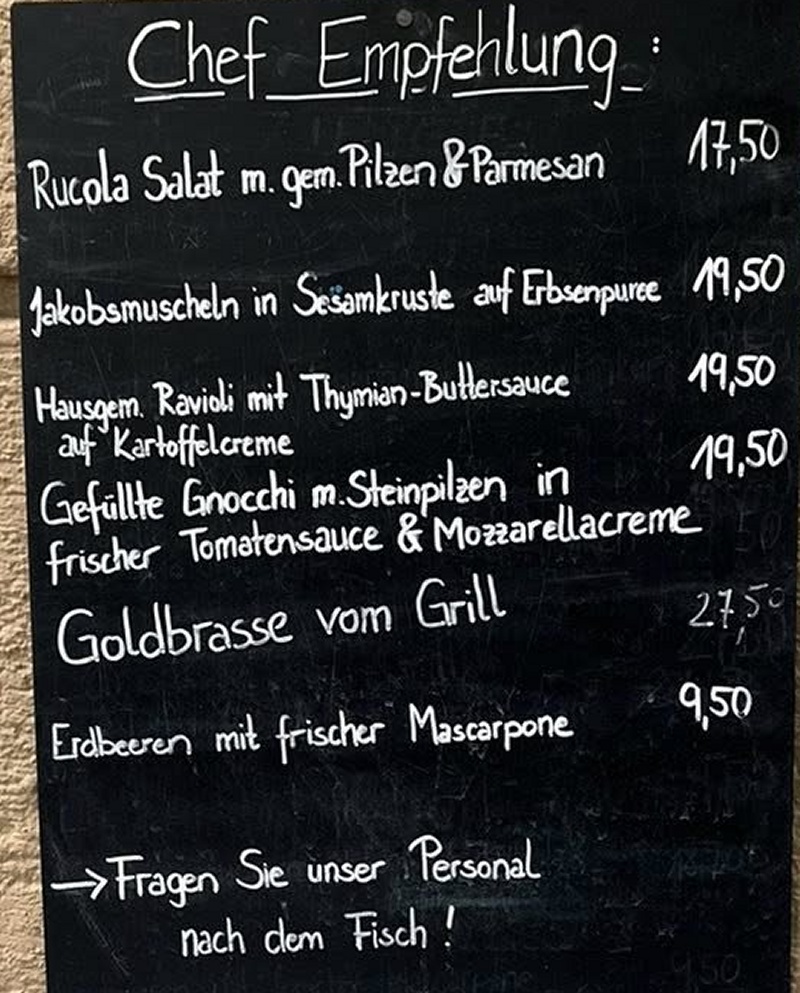 Chef Empfehlung:
Rucola Salat m. gem. Pilzen & Parmesan 17,50
Jakobsmuscheln in Sesamkruste auf Erbsenpuree 19,50
Hausgem. Ravioli mit Thymian-Buttersauce 19,50
auf Kartoffelcreme
Gefüllte Gnocchi m. Steinpilzen in 19,50
frischer Tomatensauce & Mozzarellacreme
Goldbrasse vom Grill 27,50
Erdbeeren mit frischer Mascarpone 9,50
→ Fragen Sie unser Personal
nach dem Fisch!